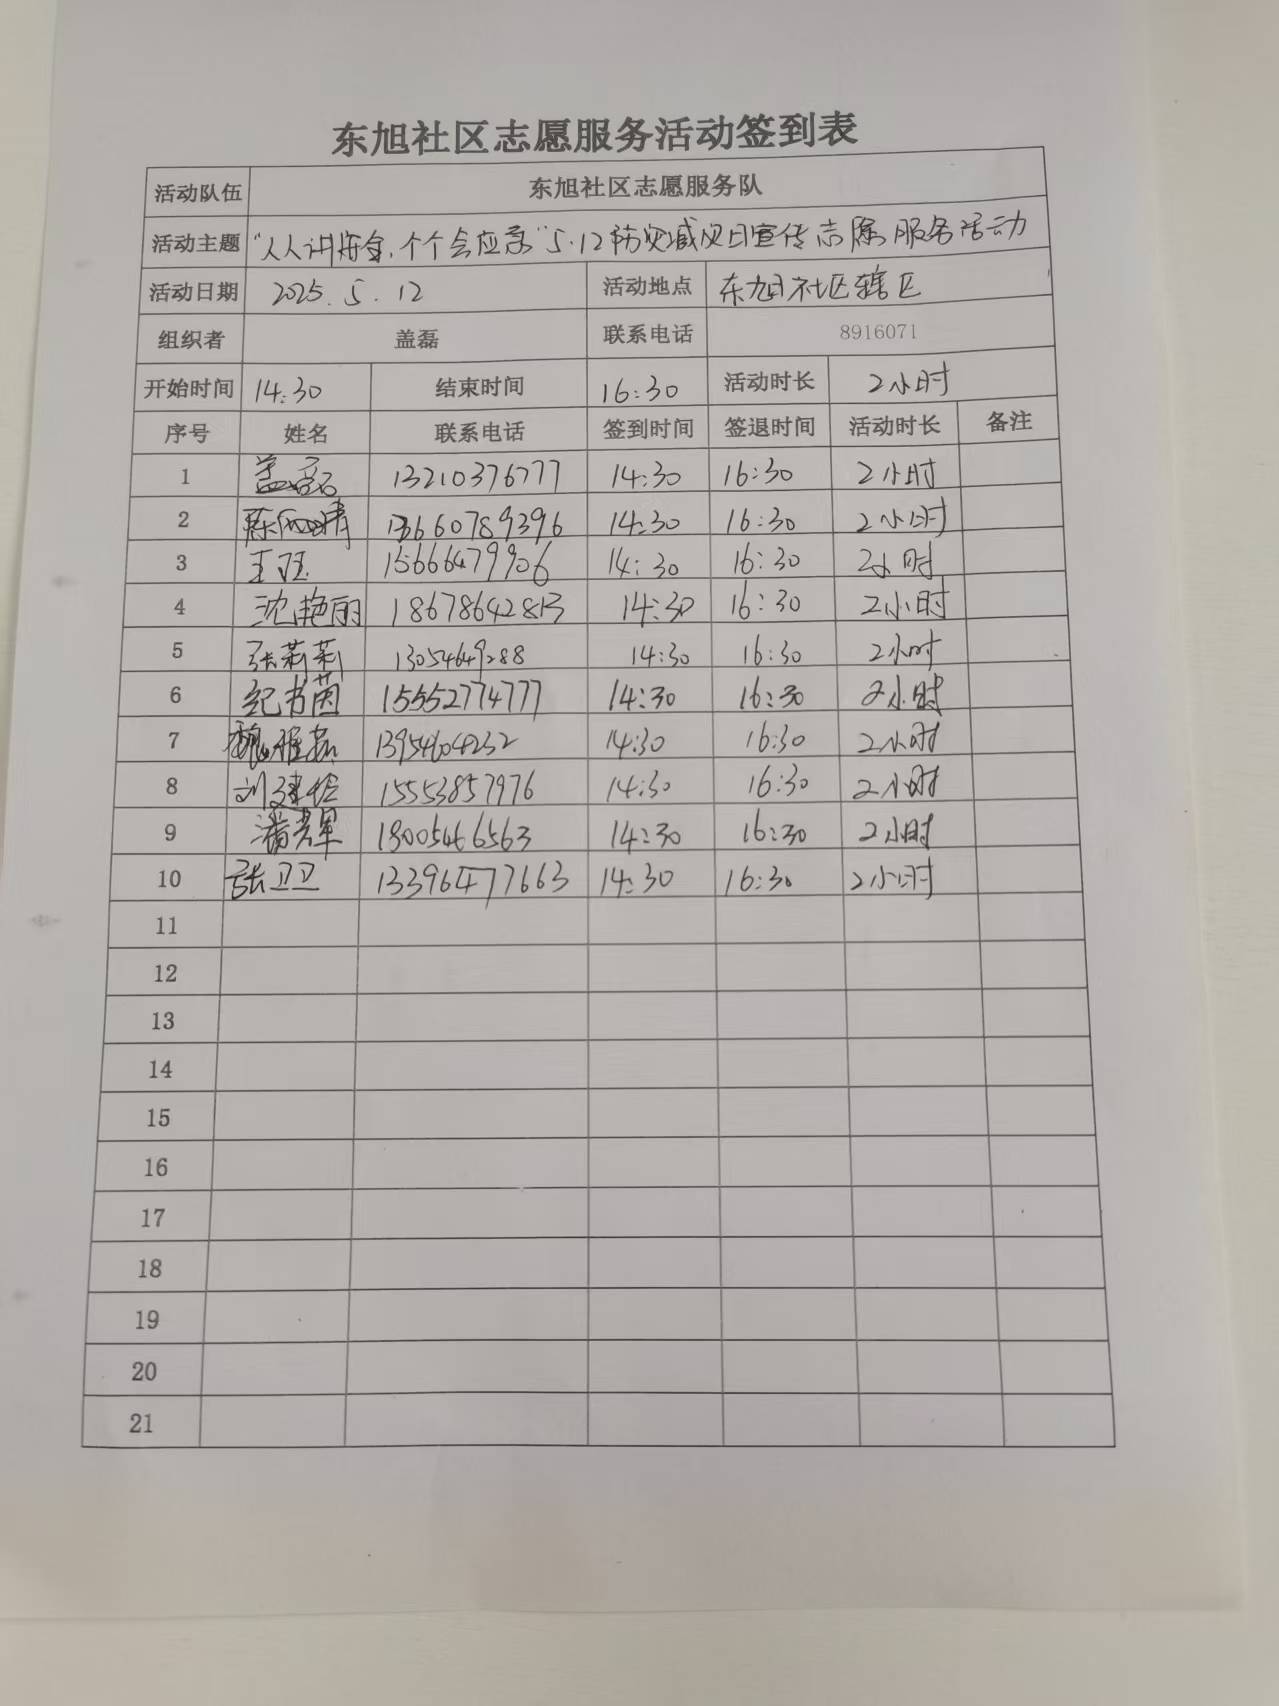 东旭社区志愿服务活动签到表
活动队伍 东旭社区志愿服务队
活动主题 "人人讲安全,个个会应急"5.12防灾减灾日宣传志愿服务活动
活动日期 2025.5.12 活动地点 东旭社区辖区
组织者 盖磊 联系电话 8916071
开始时间 14:30 结束时间 16:30 活动时长 2小时
序号 姓名 联系电话 签到时间 签退时间 活动时长 备注
1 盖磊 13210376777 14:30 16:30 2小时
2 陈雨晴 13660789396 14:30 16:30 2小时
3 王珏 15666479906 14:30 16:30 2小时
4 沈艳丽 18678642813 14:30 16:30 2小时
5 张莉莉 13054649288 14:30 16:30 2小时
6 纪书茵 15552774777 14:30 16:30 2小时
7 13954604232 14:30 16:30 2小时
8 刘建 15553857976 14:30 16:30 2小时
9 潘光军 18005466563 14:30 16:30 2小时
10 张卫卫 13396477663 14:30 16:30 2小时
11
12
13
14
15
16
17
18
19
20
21